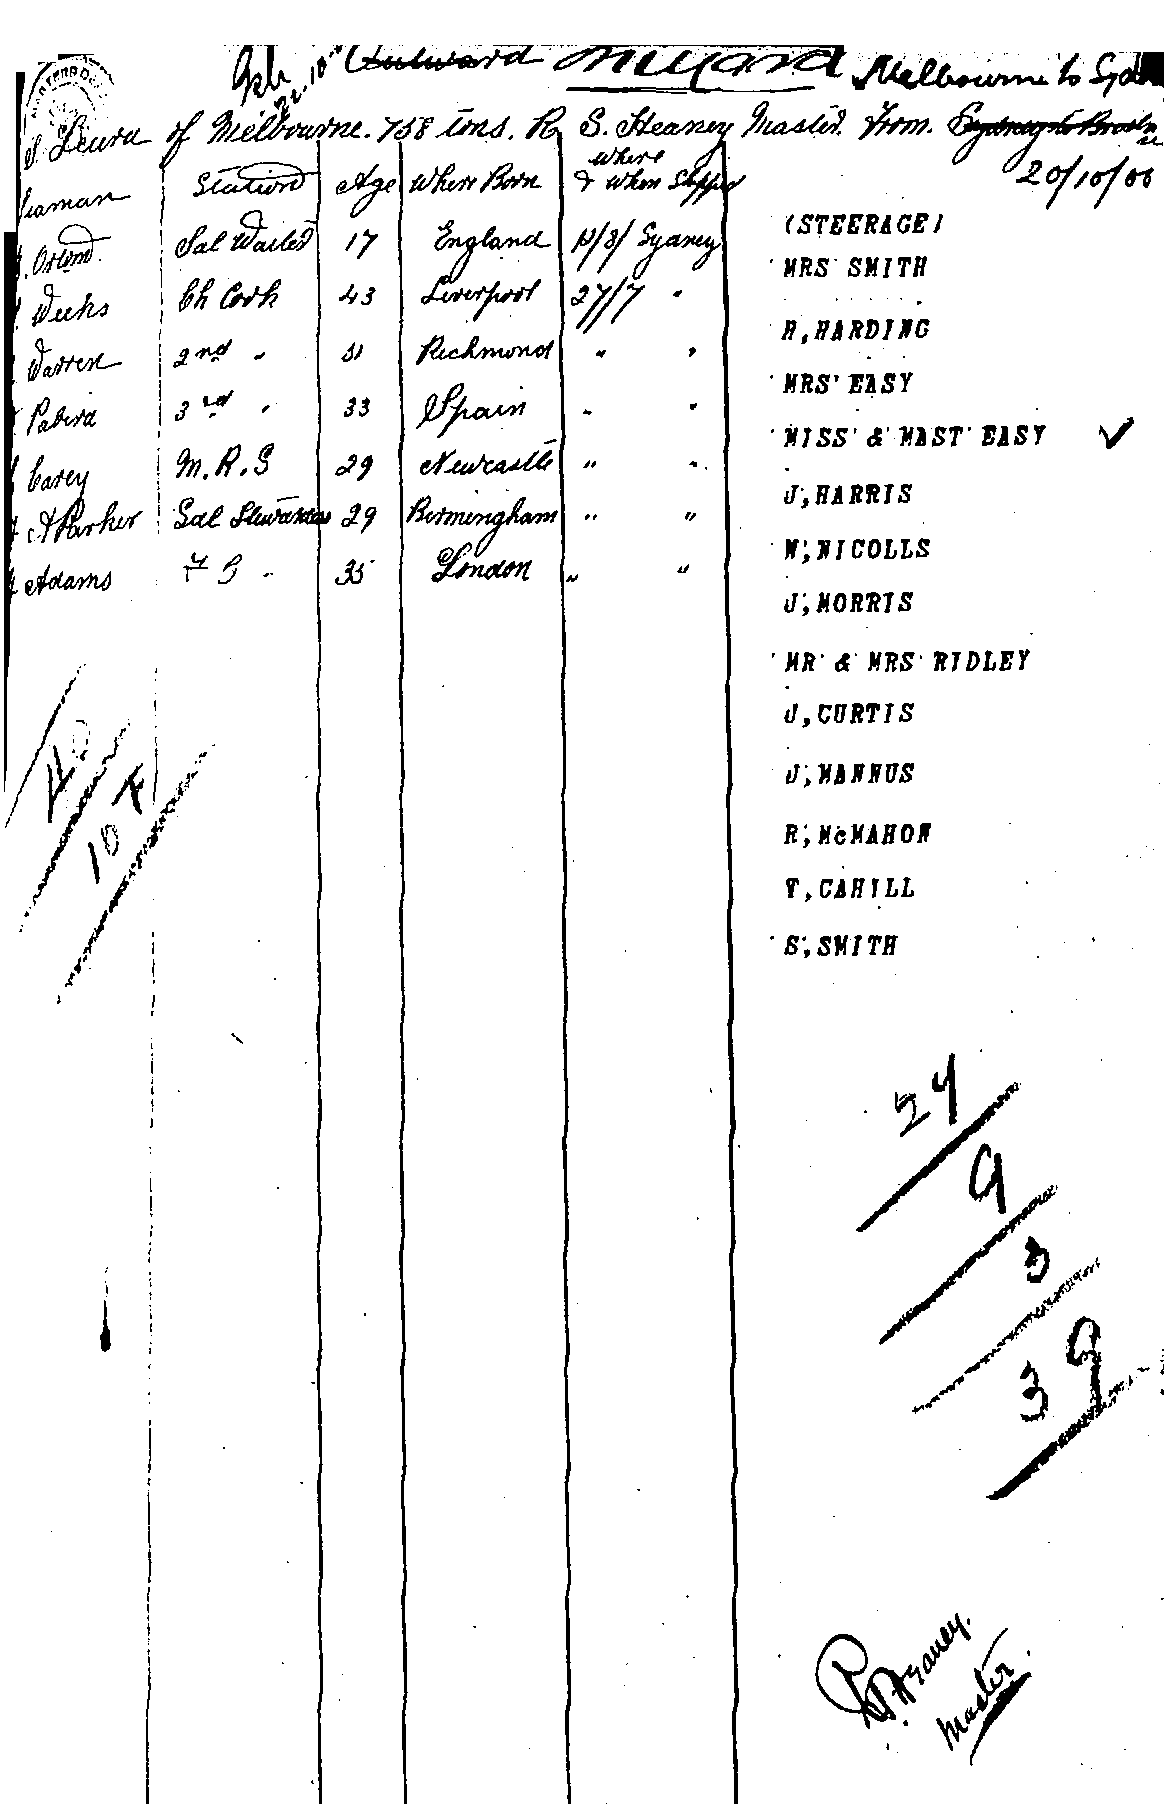 Outward Inward Melbourne to Syd
S. Leura of Melbourne. 758 tons. R. S. Heaney Master. From. Sydney to
20/10/00
Seaman Station Age Where Born Where & When Shipped
Sal Waiter 17 England Sydney
Weeks Ch Cook 43 Liverpool 27/7 "
Warren 2nd " 31 Richmond " "
3rd " 33 Spain " "
Carey M.R.S 29 Newcastle " "
A Parker Sal Stewardess 29 Birmingham " "
Adams F S " 35 London " "
(STEERAGE)
MRS SMITH
H, HARDING
MRS EASY
MISS & MAST EASY ✓
J, HARRIS
W, NICOLLS
J, MORRIS
MR & MRS RIDLEY
J, CURTIS
J, MANNUS
R, McMAHON
T, CAHILL
S, SMITH
10
9
3
39
R S Heaney.
Master.